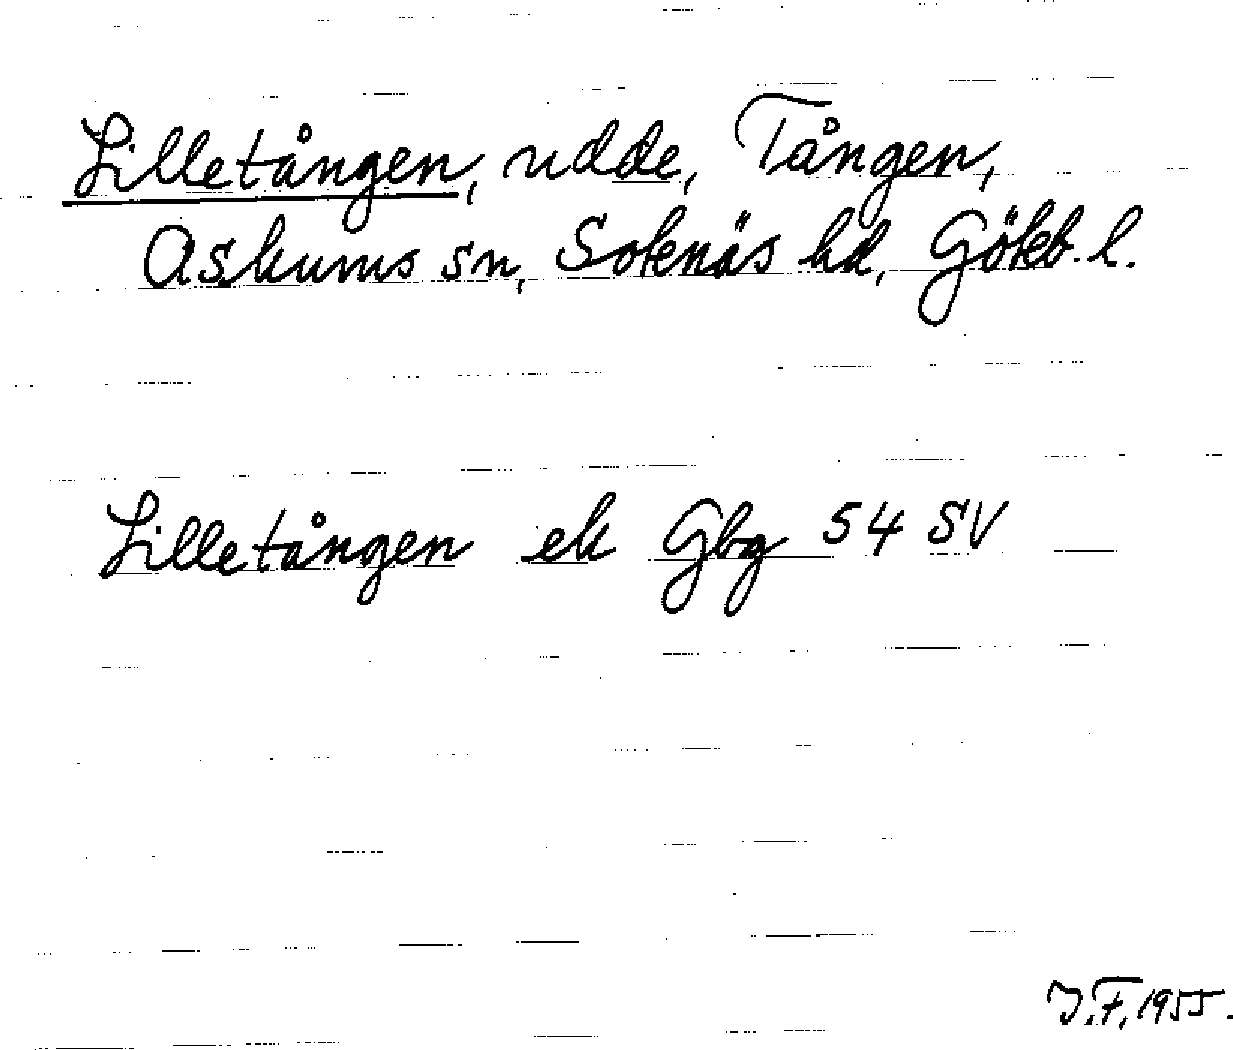 Lilletången, udde, Tången,
Askums sn, Sotenäs hd, Göteb. l.
Lilletången ek Gbg 54 SV
J.F. 1955.